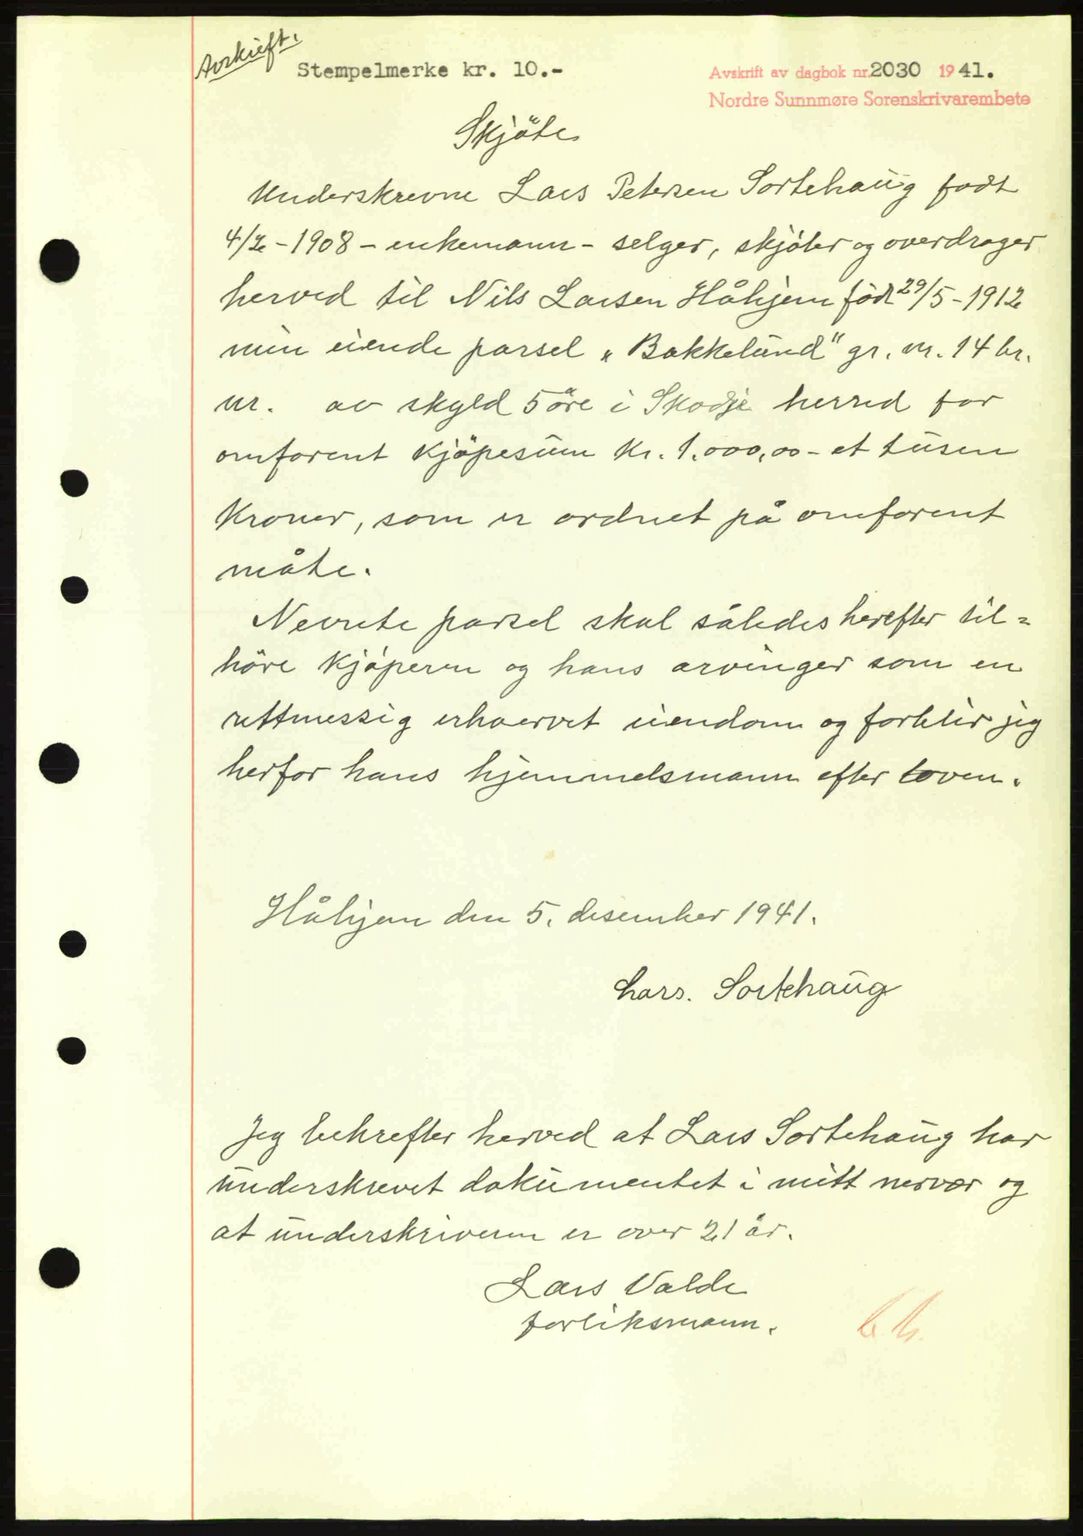 Avskrift.
Stempelmerke kr. 10.-
Avskrift av dagbok nr. 2030 1941.
Nordre Sunnmøre Sorenskrivarembete
Skjöte
Underskrevne Lars Petersen Sortehaug født
4/2 - 1908 - enkemann - selger, skjöter og overdrager
herved til Nils Larsen Håhjem född 29/5 - 1912
min eiende parsel „Bakkelund" gr. nr. 14 br.
nr. av skyld 5 öre i Skodje herred for
omforent kjöpesum kr. 1.000,00 - et tusen
kroner, som er ordnet på omforent
måte.
Nevnte parsel skal således herefter til=
höre kjöperen og hans arvinger som en
rettmessig erhvervet eiendom og forblir jeg
herfor hans hjemmelsmann efter loven.
Håhjem den 5. desember 1941.
Lars. Sortehaug
Jeg bekrefter herved at Lars Sortehaug har
underskrevet dokumentet i mitt nervær og
at underskriveren er over 21 år.
Lars Valde
forliksmann.